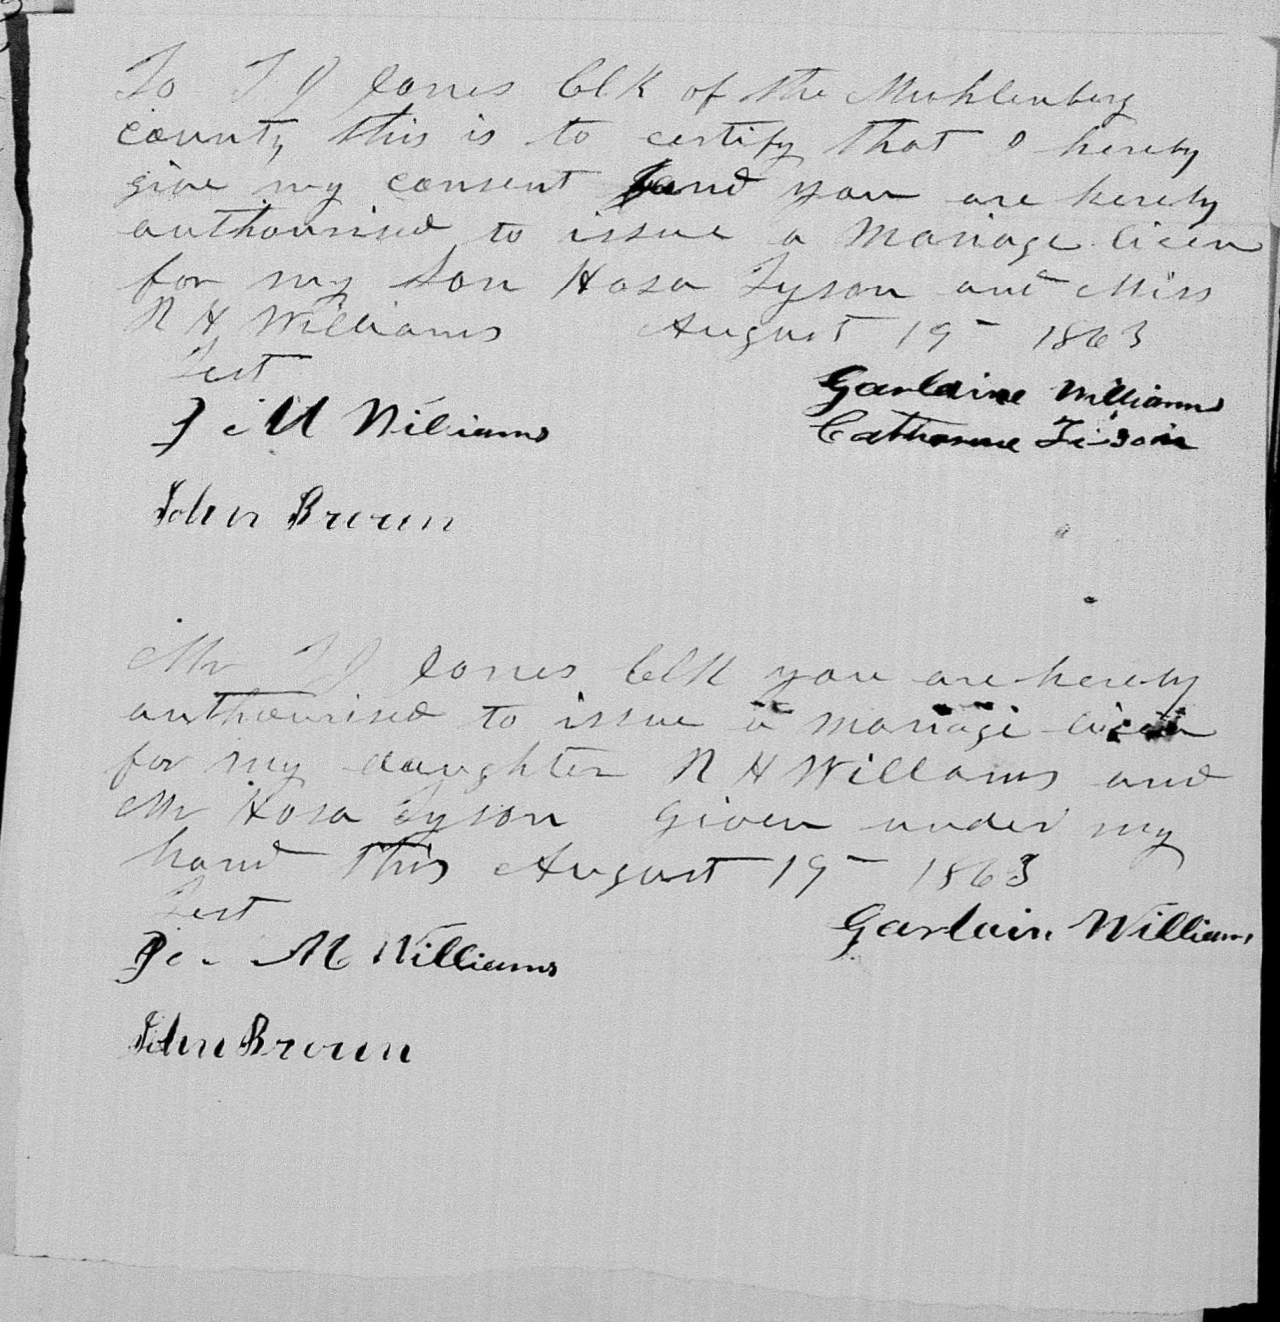 To T J Jones Clk of the Muhlenberg
county this is to certify that I hereby
give my consent and you are hereby
authourised to issue a Mariage licen
for my Son Hosa Tyson and Miss
R H Williams August 19 - 1863
Test
Garlaine Williams
J M Wiliams
Catharine Tison
John Brown
Mr T J Jones Clk you are hereby
authourised to issue a mariage licen
for my daughter R H Willams and
Mr Hosa Tyson Given under my
hand this August 19 - 1863
Test
Garlain Williams
M Williams
John Brown